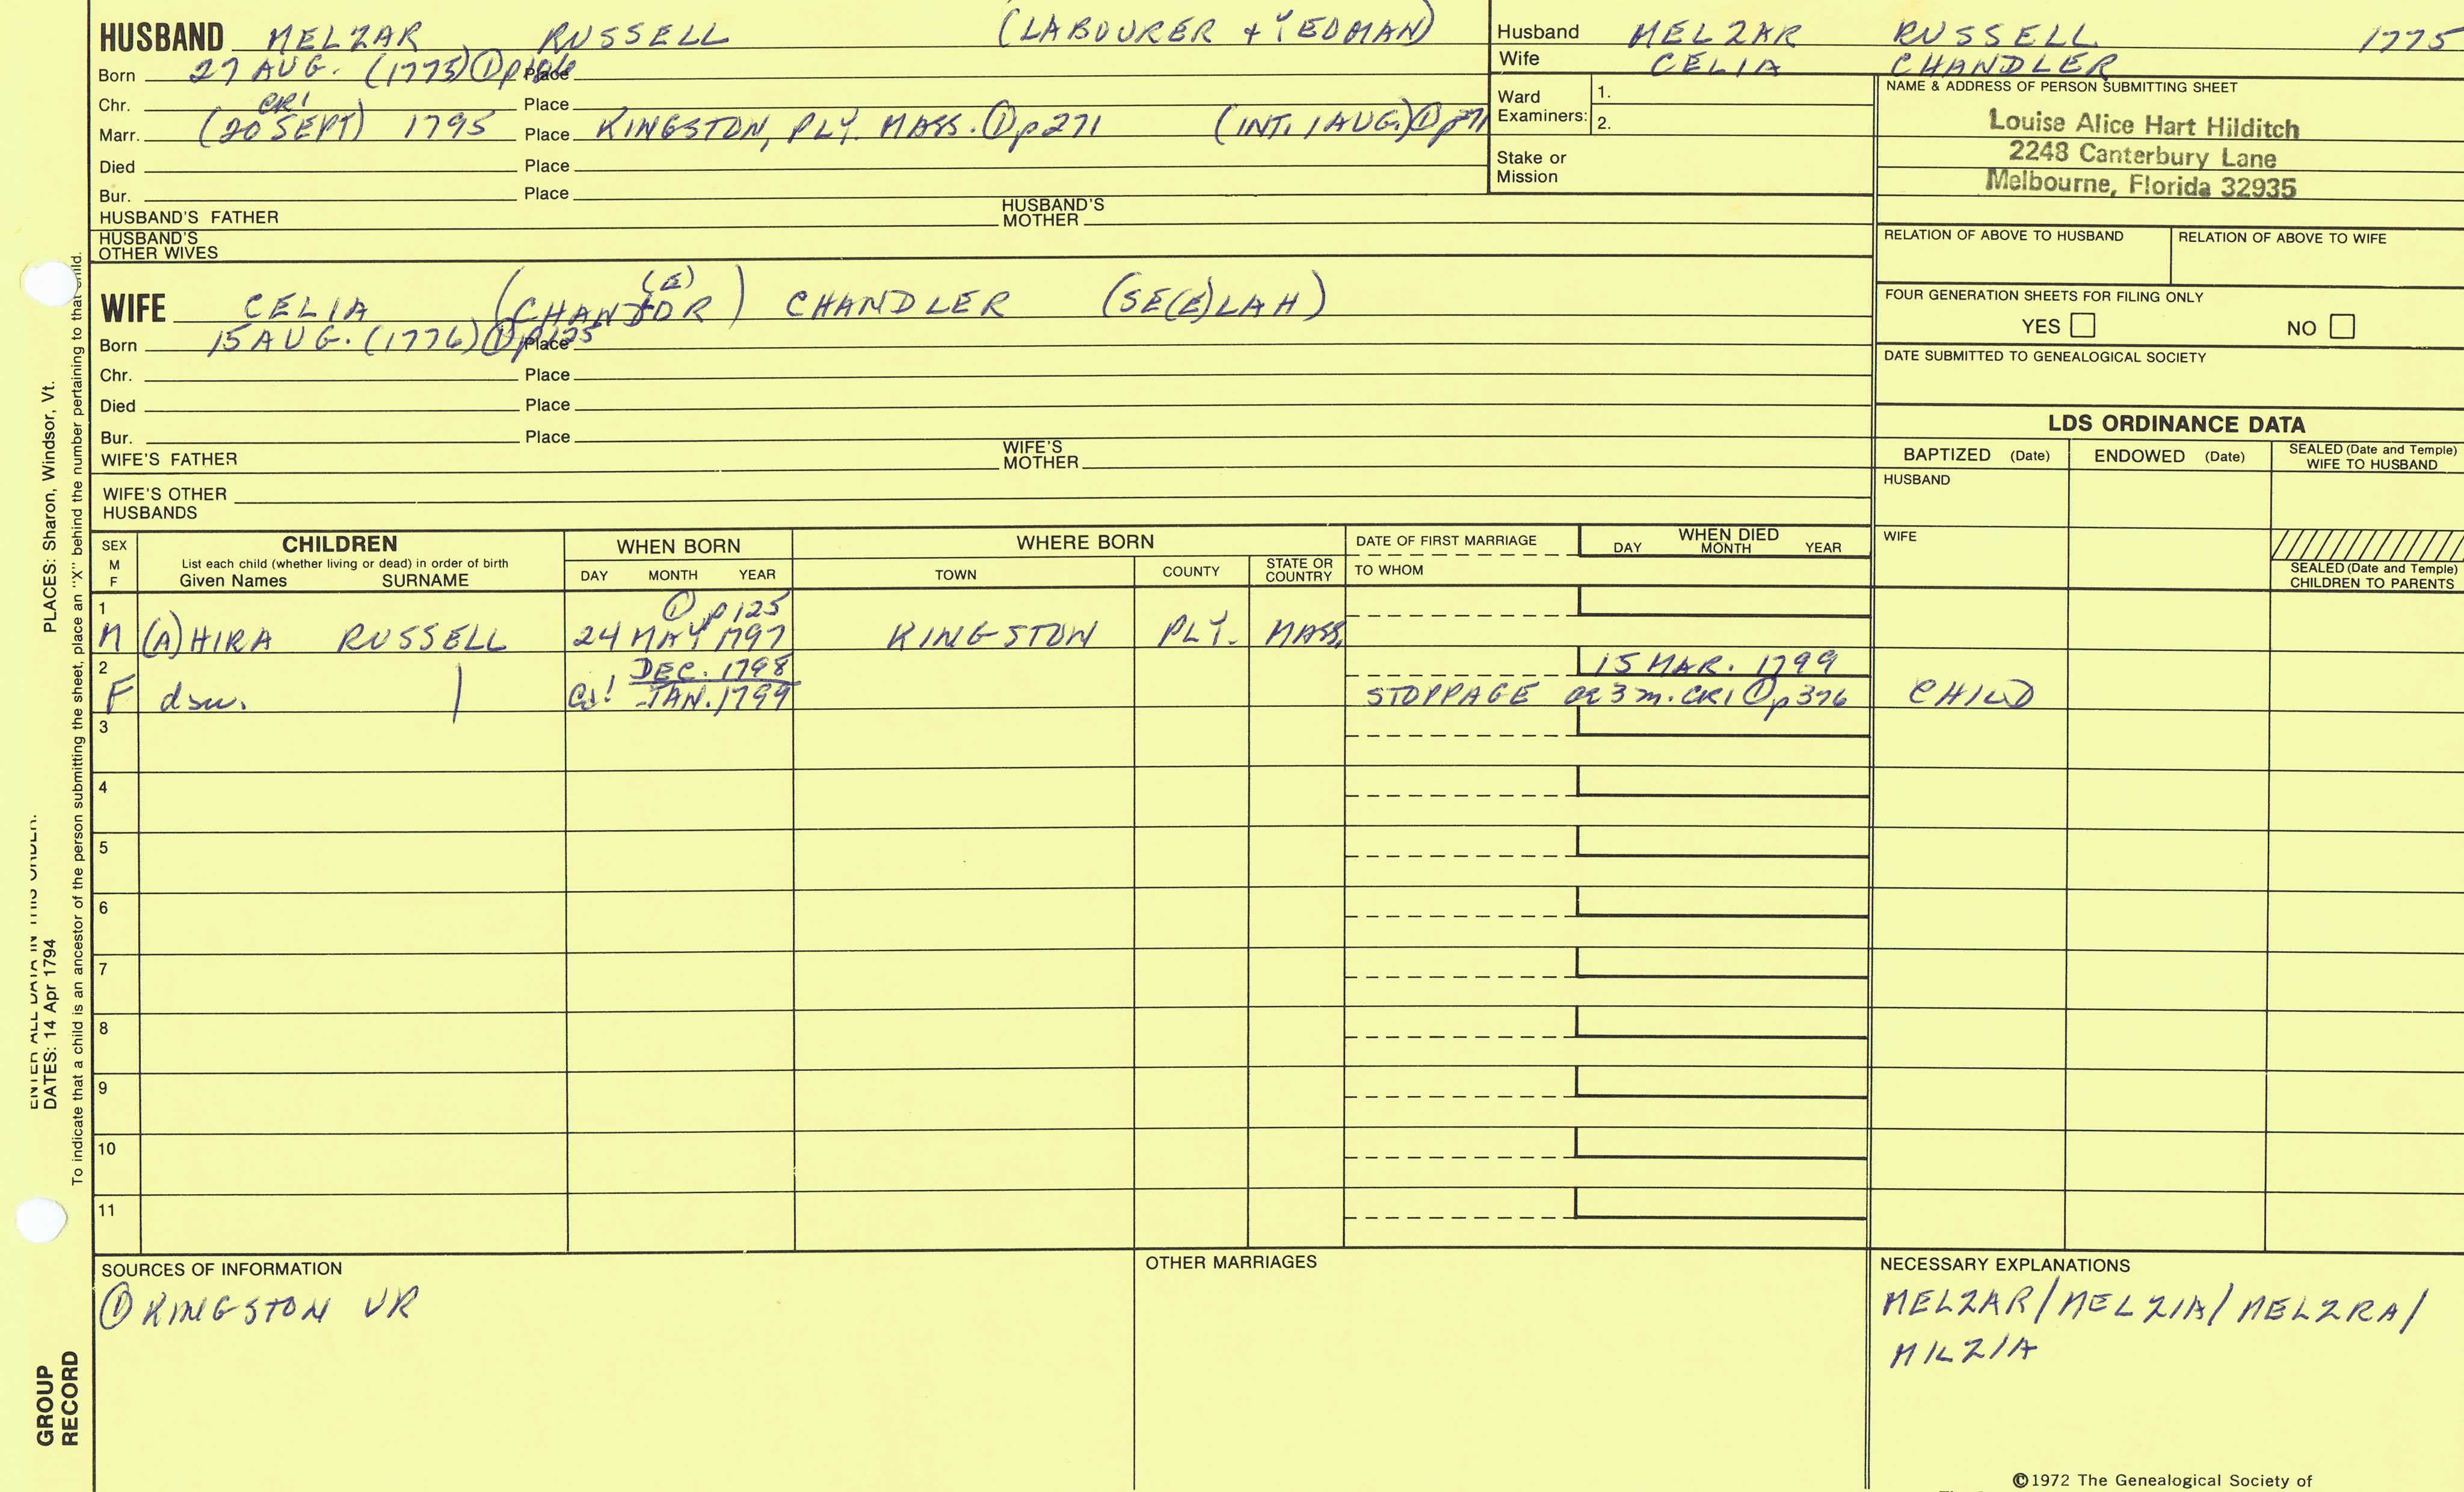 HUSBAND MELZAR RUSSELL (LABOURER + YEOMAN)
Born 27 AUG. (1775) ① Place
Chr. Place
CR1
Marr. (20 SEPT) 1795 Place KINGSTON, PLY. MASS. ① p 271 (INT. 1 AUG.) ①
Died Place
Bur. Place
HUSBAND'S FATHER HUSBAND'S MOTHER
HUSBAND'S OTHER WIVES
Husband MELZAR RUSSELL 1775
Wife CELIA CHANDLER
Ward Examiners: 1.
2.
Stake or Mission
NAME & ADDRESS OF PERSON SUBMITTING SHEET
Louise Alice Hart Hilditch
2248 Canterbury Lane
Melbourne, Florida 32935
RELATION OF ABOVE TO HUSBAND RELATION OF ABOVE TO WIFE
FOUR GENERATION SHEETS FOR FILING ONLY
YES NO
DATE SUBMITTED TO GENEALOGICAL SOCIETY
WIFE CELIA CHANDLER (SE(E)LAH)
Born 15 AUG. (1776) ① p 125 Place
Chr. Place
Died Place
Bur. Place
WIFE'S FATHER WIFE'S MOTHER
WIFE'S OTHER HUSBANDS
LDS ORDINANCE DATA
BAPTIZED (Date) ENDOWED (Date) SEALED (Date and Temple) WIFE TO HUSBAND
HUSBAND
WIFE
SEALED (Date and Temple) CHILDREN TO PARENTS
SEX M F
CHILDREN
List each child (whether living or dead) in order of birth
Given Names SURNAME
WHEN BORN
DAY MONTH YEAR
WHERE BORN
TOWN COUNTY STATE OR COUNTRY
DATE OF FIRST MARRIAGE
TO WHOM
WHEN DIED
DAY MONTH YEAR
1 ① p 125
M (A)HIRA RUSSELL 24 MAY 1797 KINGSTON PLY. MASS.
2 DEC. 1798 15 MAR. 1799
F JAN. 1799 STOPPAGE ae 3 m. CR1 ① p 376 CHILD
3
4
5
6
7
8
9
10
11
SOURCES OF INFORMATION
① KINGSTON VR
OTHER MARRIAGES
NECESSARY EXPLANATIONS
MELZAR/MELZIA/MELZRA/
MILZIA
©1972 The Genealogical Society of
PLACES: Sharon, Windsor, Vt.
ENTER ALL DATA IN THIS ORDER:
DATES: 14 Apr 1794
To indicate that a child is an ancestor of the person submitting the sheet, place an "X" behind the number pertaining to that child.
GROUP
RECORD